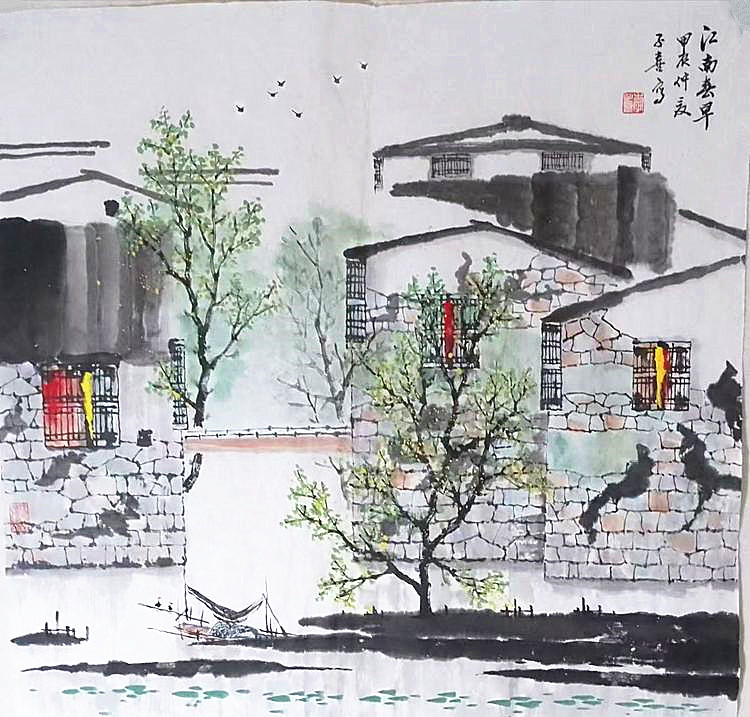 江南春早
甲辰仲夏
子喜写